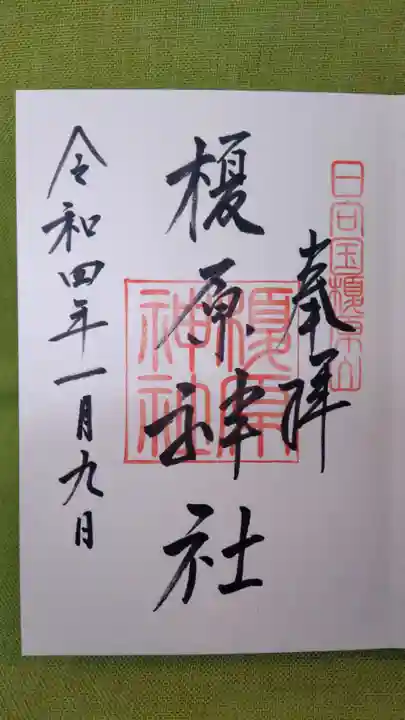 日向国榎原山
奉拝
榎原神社
榎原神社
令和四年一月九日